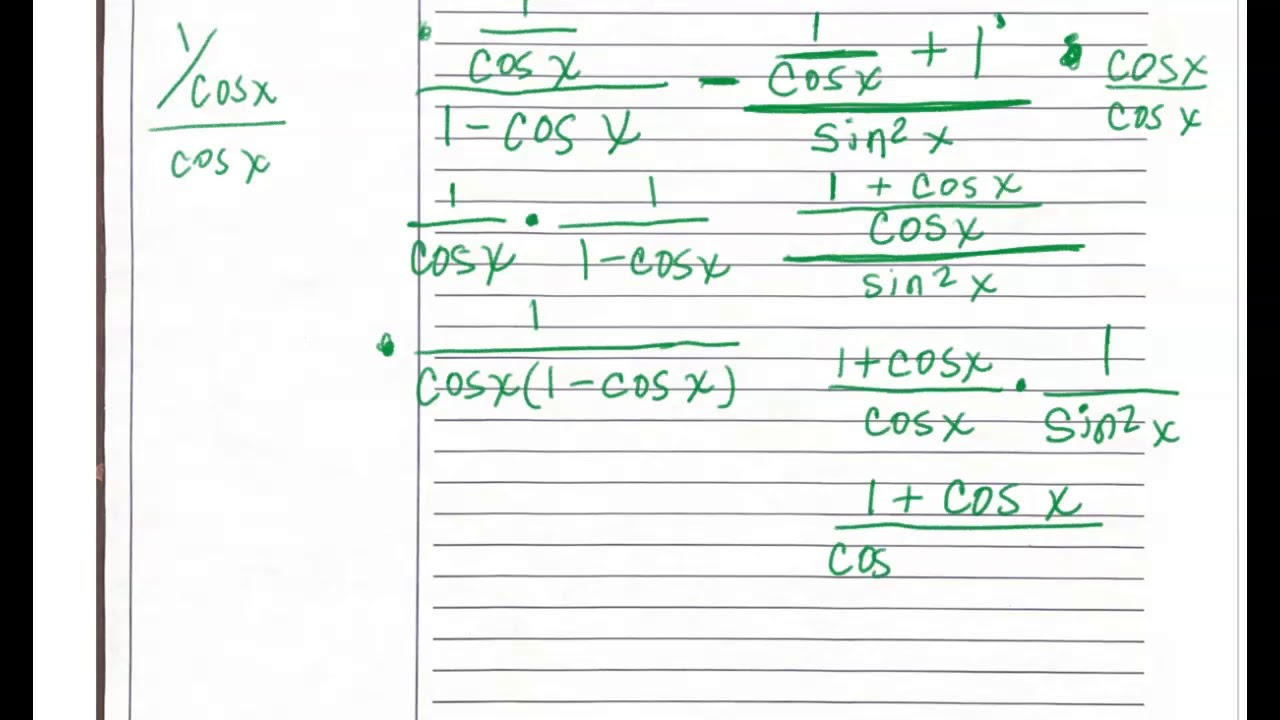 1/cosx / cosx
1/cos x / 1-cos x - 1/cosx + 1 / sin²x • cosx/cosx
1/cosx • 1/1-cosx
1 + cosx / cosx / sin²x
• 1 / cosx(1-cos x)
1+cosx / cosx • 1 / sin²x
1 + cos x / cos